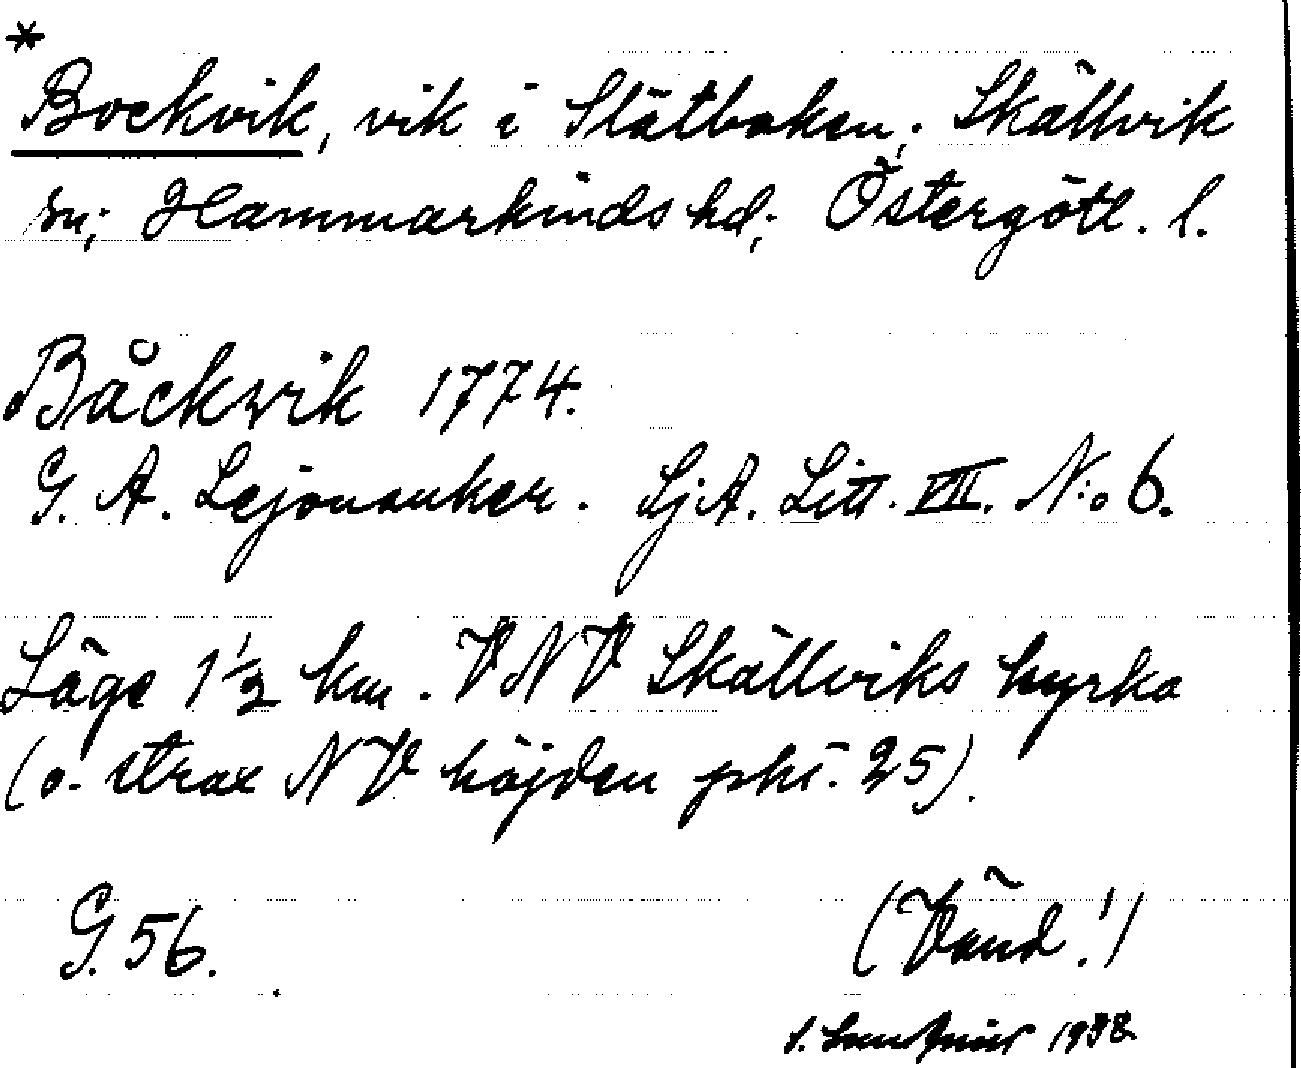 *
Bockvik, vik i Slätbaken; Skällvik
sn; Hammarkinds hd; Östergötl. l.
Båckvik 1774.
G. A. Lejonanker. LjA. Litt. VII. N:o 6.
Läge 1½ km. VNV Skällviks kyrka
(o. strax NV höjden pkt. 25).
G. 56.
(Vänd!)
1938